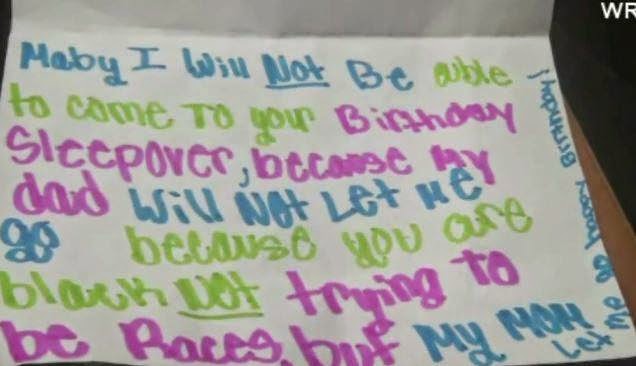 WR
Maby I Will Not Be able
to come TO your Birthday
Sleepover, because My
dad Will Not Let Me
go because you are
black Not trying to
be Races, but My MOM
Let Me go happy Birthday!